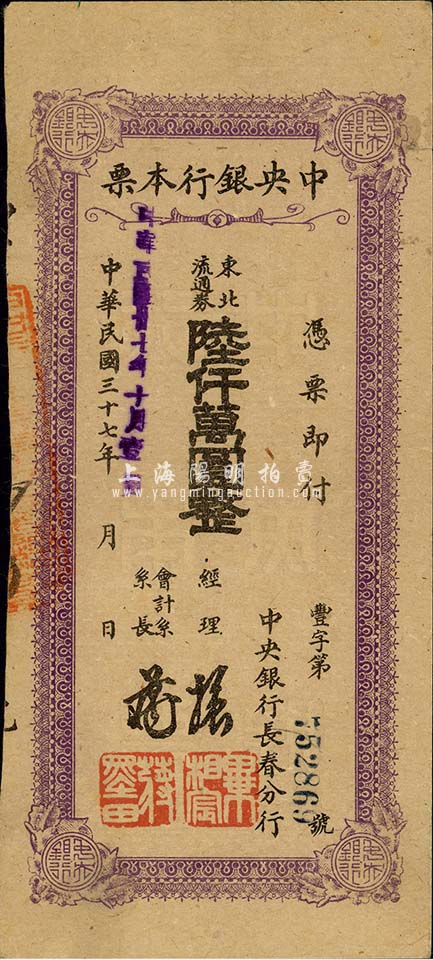 中央銀行本票
憑票即付
東北
流通券
陸仟萬圓整
中華民國三十七年 月 日
豐字第752869號
中央銀行長春分行
經理
會計系
系長
上海陽明拍賣
www.yangmingauction.com